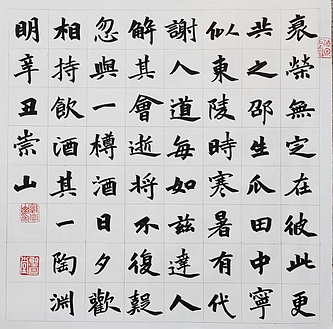 衰榮無定在彼此更
共之邵生瓜田中寧
似東陵時寒暑有代
謝人道每如茲達人
解其會逝將不復疑
忽與一樽酒日夕歡
相持飲酒其一陶淵
明辛丑崇山